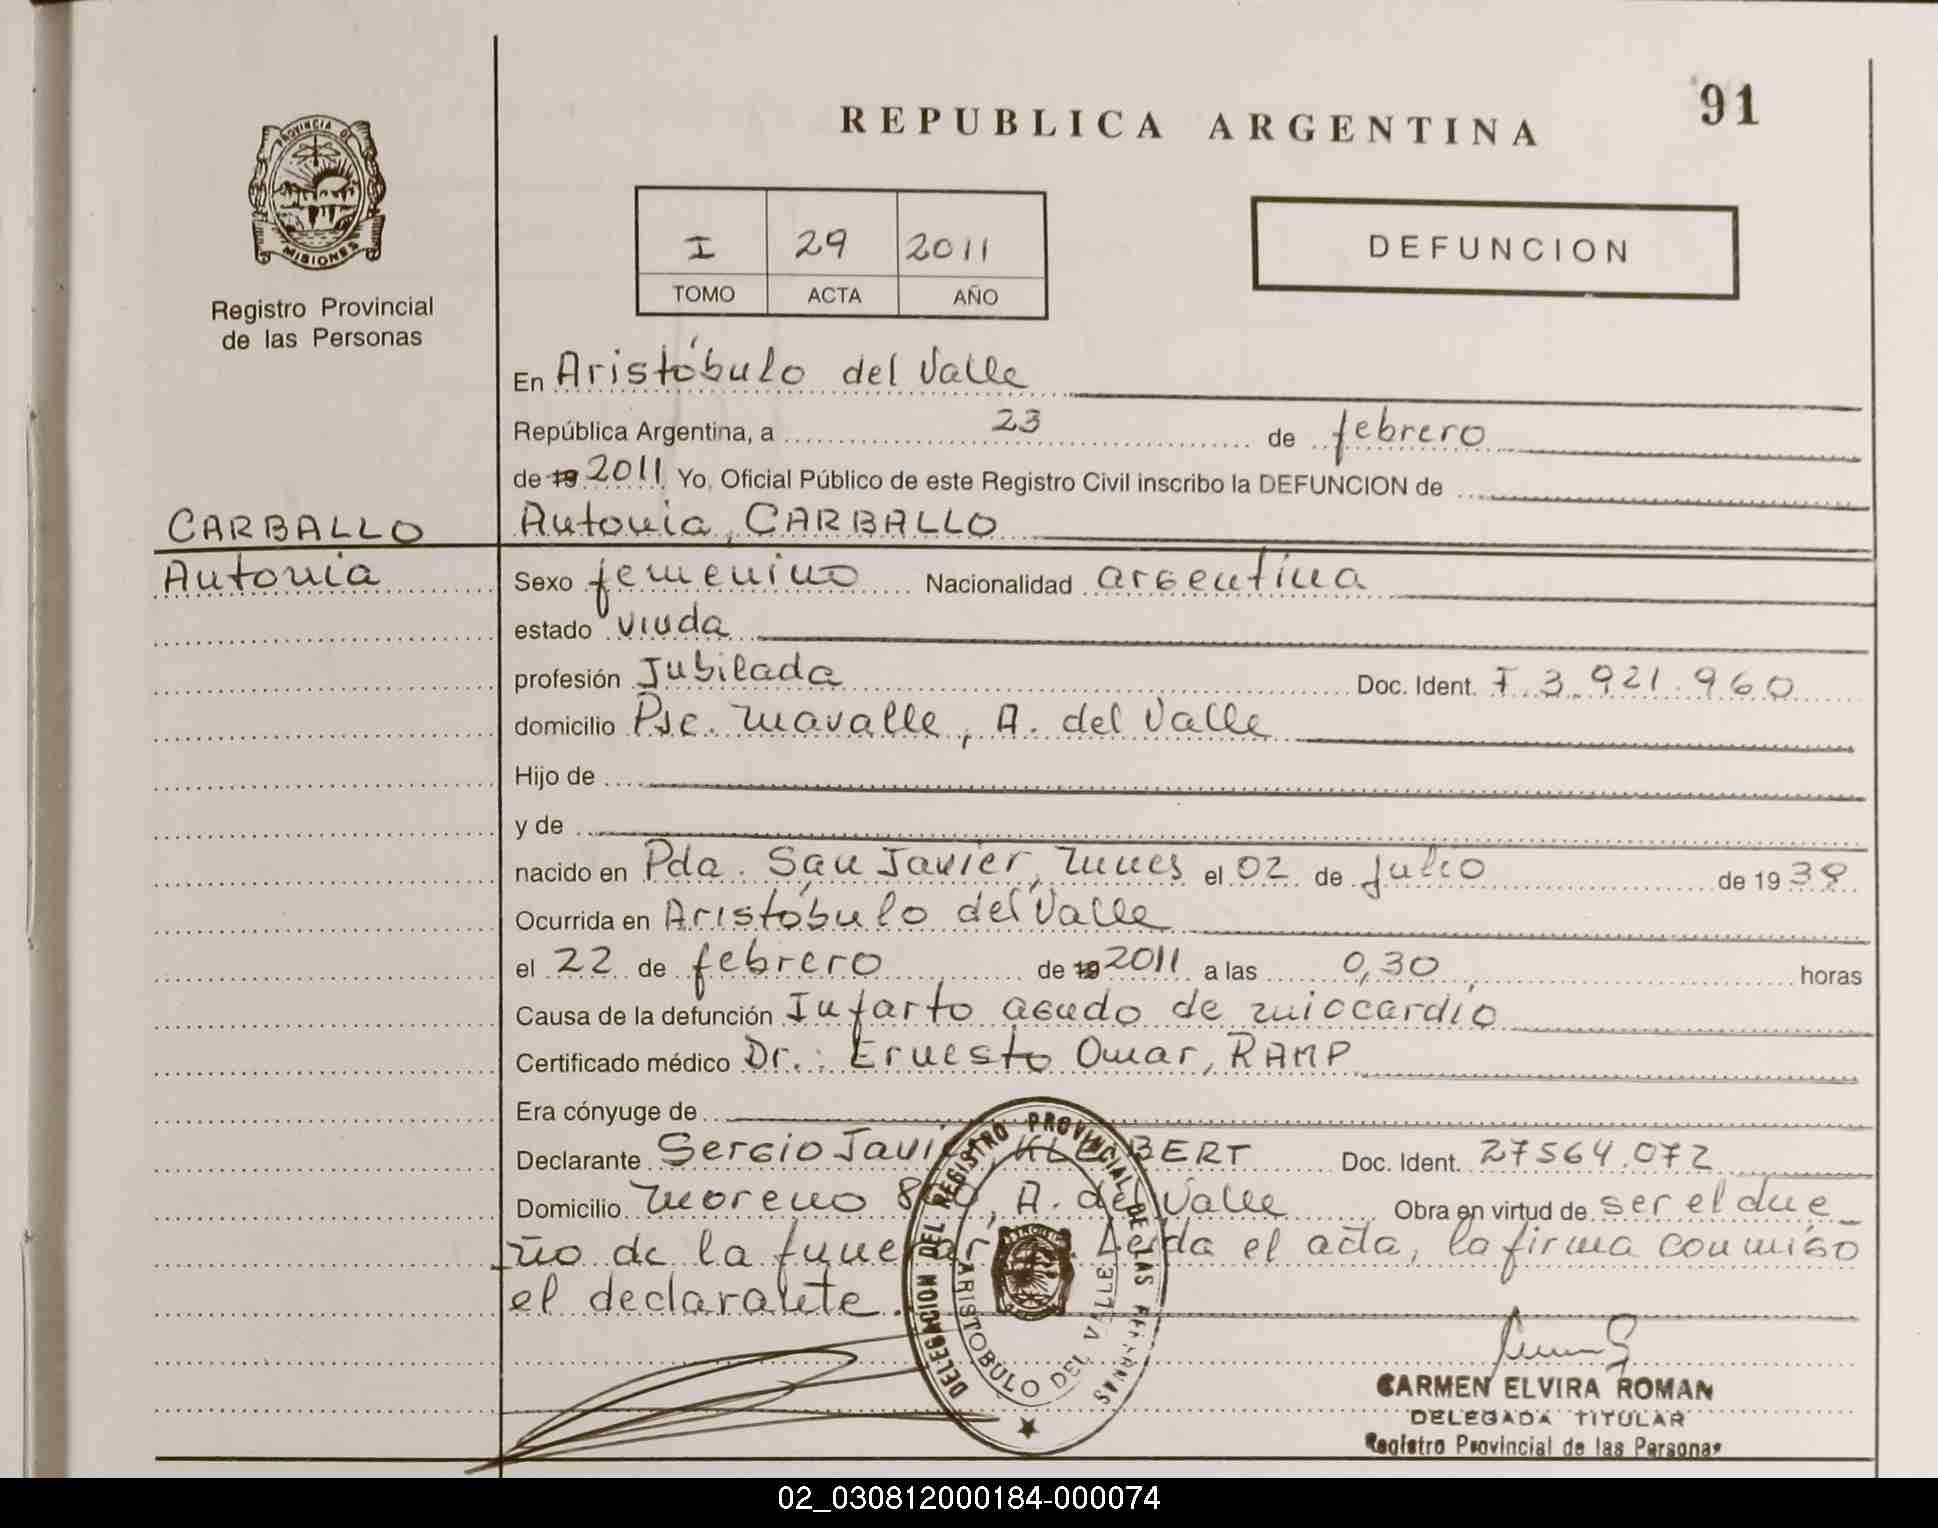 91
REPUBLICA ARGENTINA
PROVINCIA DE
MISIONES
Registro Provincial
de las Personas
I 29 2011
TOMO ACTA AÑO
DEFUNCION
En Aristóbulo del Valle
República Argentina, a 23 de febrero
de 19 2011 Yo, Oficial Público de este Registro Civil inscribo la DEFUNCION de
CARBALLO
Antonia
Antonia, CARBALLO
Sexo femenino Nacionalidad argentina
estado viuda
profesión Jubilada Doc. Ident. F 3.921.960
domicilio Pje. Mavalle, A. del Valle
Hijo de
y de
nacido en Pda. San Javier, Mnes el 02 de julio de 19
Ocurrida en Aristóbulo del Valle
el 22 de febrero de 19 2011 a las 0,30 horas
Causa de la defunción Infarto agudo de miocardio
Certificado médico Dr.: Ernesto Omar, RAMP
Era cónyuge de
Declarante Sergio Javier, Doc. Ident. 27564.072
Domicilio Moreno A. del Valle Obra en virtud de ser el due_
ño de la funeraria. Leída el acta, la firma conmigo
el declarante.
DELEGACION DEL REGISTRO PROVINCIAL DE LAS PERSONAS
ARISTOBULO DEL VALLE
CARMEN ELVIRA ROMAN
DELEGADA TITULAR
Registro Provincial de las Personas
02_030812000184-000074